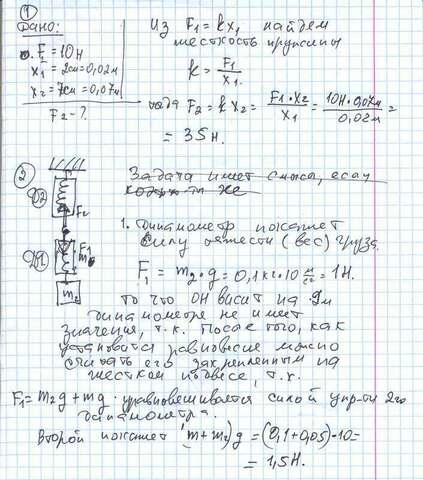 ①
Дано:
F₁ = 10Н
x₁ = 2см = 0,02м
x₂ = 7см = 0,07м
F₂ - ?
Из F₁ = k x₁ найдем
жесткость пружины
k = F₁ / x₁
тогда F₂ = k x₂ = F₁·x₂ / x₁ = 10Н·0,07м / 0,02м =
= 35 Н.
②
Задача имеет смысл, если
же
1. Динамометр покажет
силу тяжести (вес) груза.
F₁ = m₂·g = 0,1кг·10 м/с² = 1Н.
То что он висит на
динамометре не имеет
значения, т.к. после того, как
установится равновесие можно
считать его закрепленным на
жестком подвесе, т.к.
F₁ = m₂g + mg уравновешивается силой упр-ти 2го
динамометра.
Второй покажет (m + m₂)g = (0,1+0,05)·10 =
= 1,5Н.
F₂
F₁
m
m₂